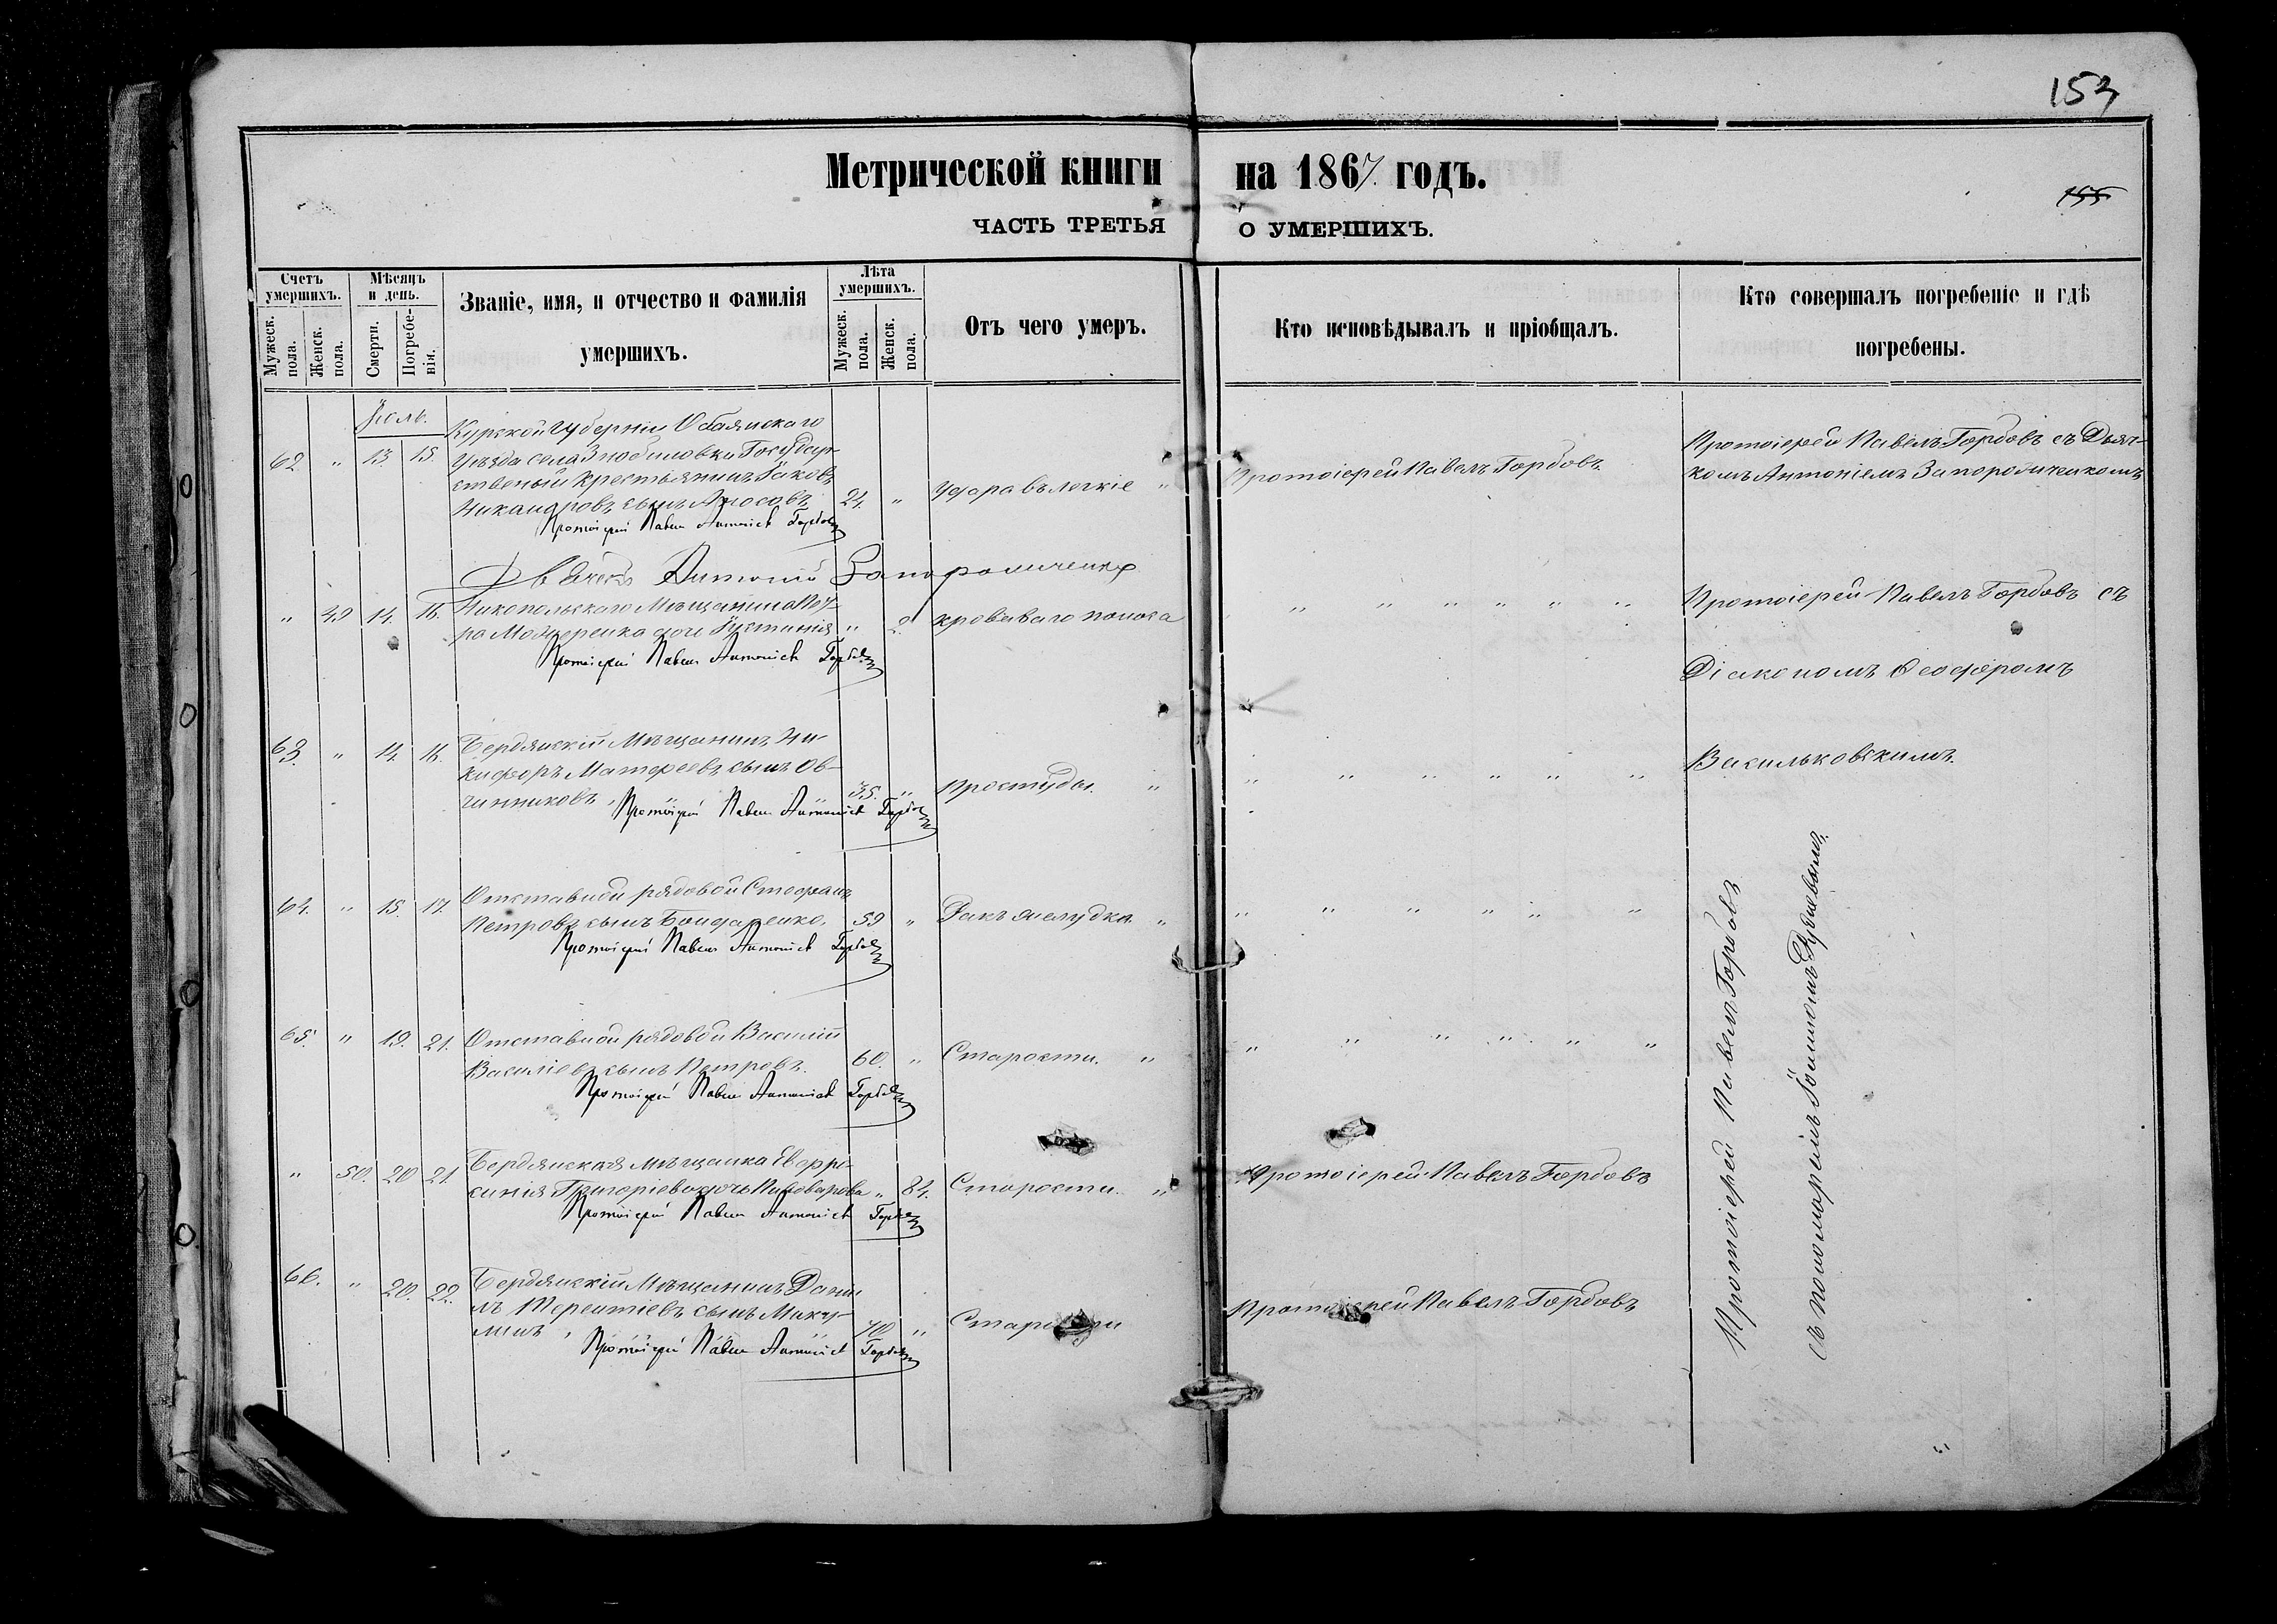 153
155
Метрической книги на 1867. годъ.
ЧАСТЬ ТРЕТЬЯ О УМЕРШИХЪ.
Счетъ умершихъ.
Мужеск. пола.
Женск. пола.
Мѣсяцъ и день.
Смерти.
Погребенія.
Званіе, имя, и отчество и фамилія
умершихъ.
Лѣта умершихъ.
Мужеск. пола.
Женск. пола.
Отъ чего умеръ.
Кто исповѣдывалъ и пріобщалъ.
Кто совершалъ погребеніе и гдѣ
погребены.
Іюль.
Курской Губерніи Обаянскаго
62 " 13. 15. Уѣзда села Государ-
ственый крестьянинъ Іаковъ
Никандровъ сынъ 24. " Удара въ легкіе "
Протоіерей Павелъ Антоніевъ Горбовъ
Протоіерей Павелъ Горбовъ
Протоіерей Павелъ Горбовъ съ Дьяч-
комъ Антоніемъ Запорожченкомъ
Дьячекъ Антоній Запорожченко
" 49 14. 16. Никопольскаго Мѣщанина
дочь Іустинія " 2. кроваваго поноса
Протоіерей Павелъ Антоніевъ Горбовъ
" " " " " "
Протоіерей Павелъ Горбовъ съ
Діакономъ Ѳеодоромъ
Васильковскимъ.
63. " 14. 16. Бердянскій Мѣщанинъ Ни-
кифоръ Матфеевъ сынъ Ов-
чинниковъ 35. " Простуды. "
Протоіерей Павелъ Антоніевъ Горбовъ
" " " " " "
64. " 15. 17. Отставной рядовой Стефанъ
Петровъ сынъ Бондаренко. 59 " Ракъ желудка "
Протоіерей Павелъ Антоніевъ Горбовъ
" " " " " "
65. " 19. 21. Отставной рядовой Василій
Василіевъ сынъ Петровъ. 60. " Старости. "
Протоіерей Павелъ Антоніевъ Горбовъ
" " " " " "
" 50. 20 21. Бердянская мѣщанка Евфро-
синія Григоріева дочь Пивоварова " 84. Старости. "
Протоіерей Павелъ Антоніевъ Горбовъ
Протоіерей Павелъ Горбовъ
66. " 20. 22. Бердянскій Мѣщанинъ Дани-
лъ Терентіевъ сынъ
70. " Старости
Протоіерей Павелъ Антоніевъ Горбовъ
Протоіерей Павелъ Горбовъ
Протоіерей Павелъ Горбовъ
съ пономаремъ